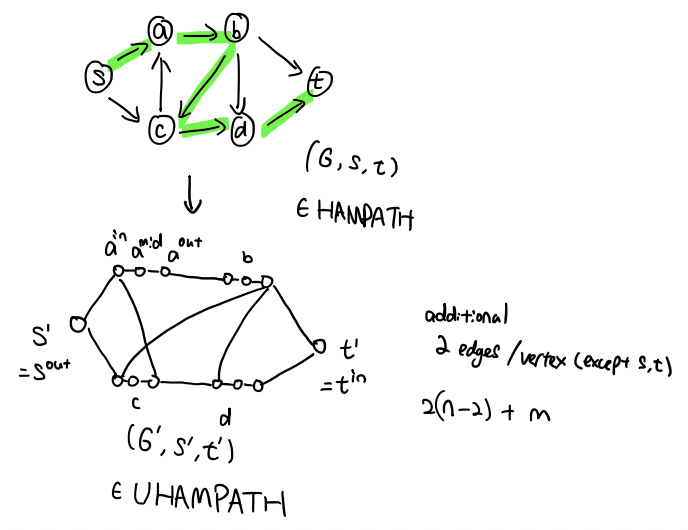 a
b
s
t
c
d
(G, s, t)
∈ HAMPATH
a^in a^mid a^out
b
s'
= s^out
t'
= t^in
c
d
(G', s', t')
∈ UHAMPATH
additional
2 edges / vertex (except s, t)
2(n-2) + m